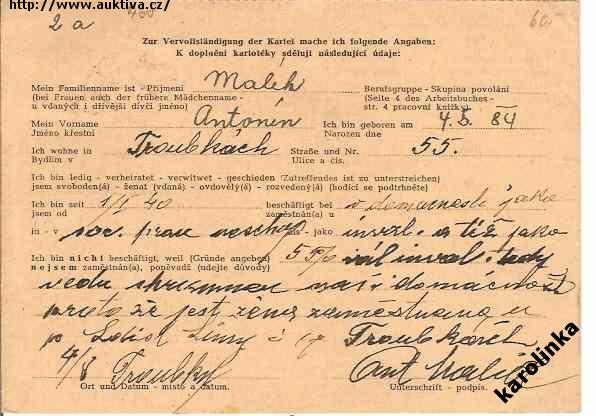 http://www.auktiva.cz/
2 a
60,-
Zur Vervollständigung der Kartei mache ich folgende Angaben:
K doplnění kartotéky sděluji následující údaje:
Mein Familienname ist - Příjmení Malík Berufsgruppe - Skupina povolání
(bei Frauen auch der frühere Mädchenname - (Seite 4 des Arbeitsbuches -
u vdaných i dřívější dívčí jméno) str. 4 pracovní knížky)
Mein Vorname Antonín Ich bin geboren am 4.5. 84
Jméno křestní Narozen dne
Ich wohne in Troubkách Straße und Nr. 55.
Bydlím v Ulice a čís.
Ich bin ledig - verheiratet - verwitwet - geschieden (Zutreffendes ist zu unterstreichen)
jsem svoboden(á) - ženat (vdaná) - ovdovělý(á) - rozvedený(á) (hodící se podtrhněte)
Ich bin seit 1/I 40 beschäftigt bei v domácnosti jako
jsem od zaměstnán(a) u
in - v soc. prau neschop als - jako inval. a též jako
Ich bin nicht beschäftigt, weil (Gründe angeben) inval. tedy
nejsem zaměstnán(a), poněvadž (udejte důvody)
vedu naší domácnost
proto že jest žena zaměstnaná u
p Troubkách
4/8 Troubky Ant Malík
Ort und Datum - místo a datum. Unterschrift - podpis.
karolinka